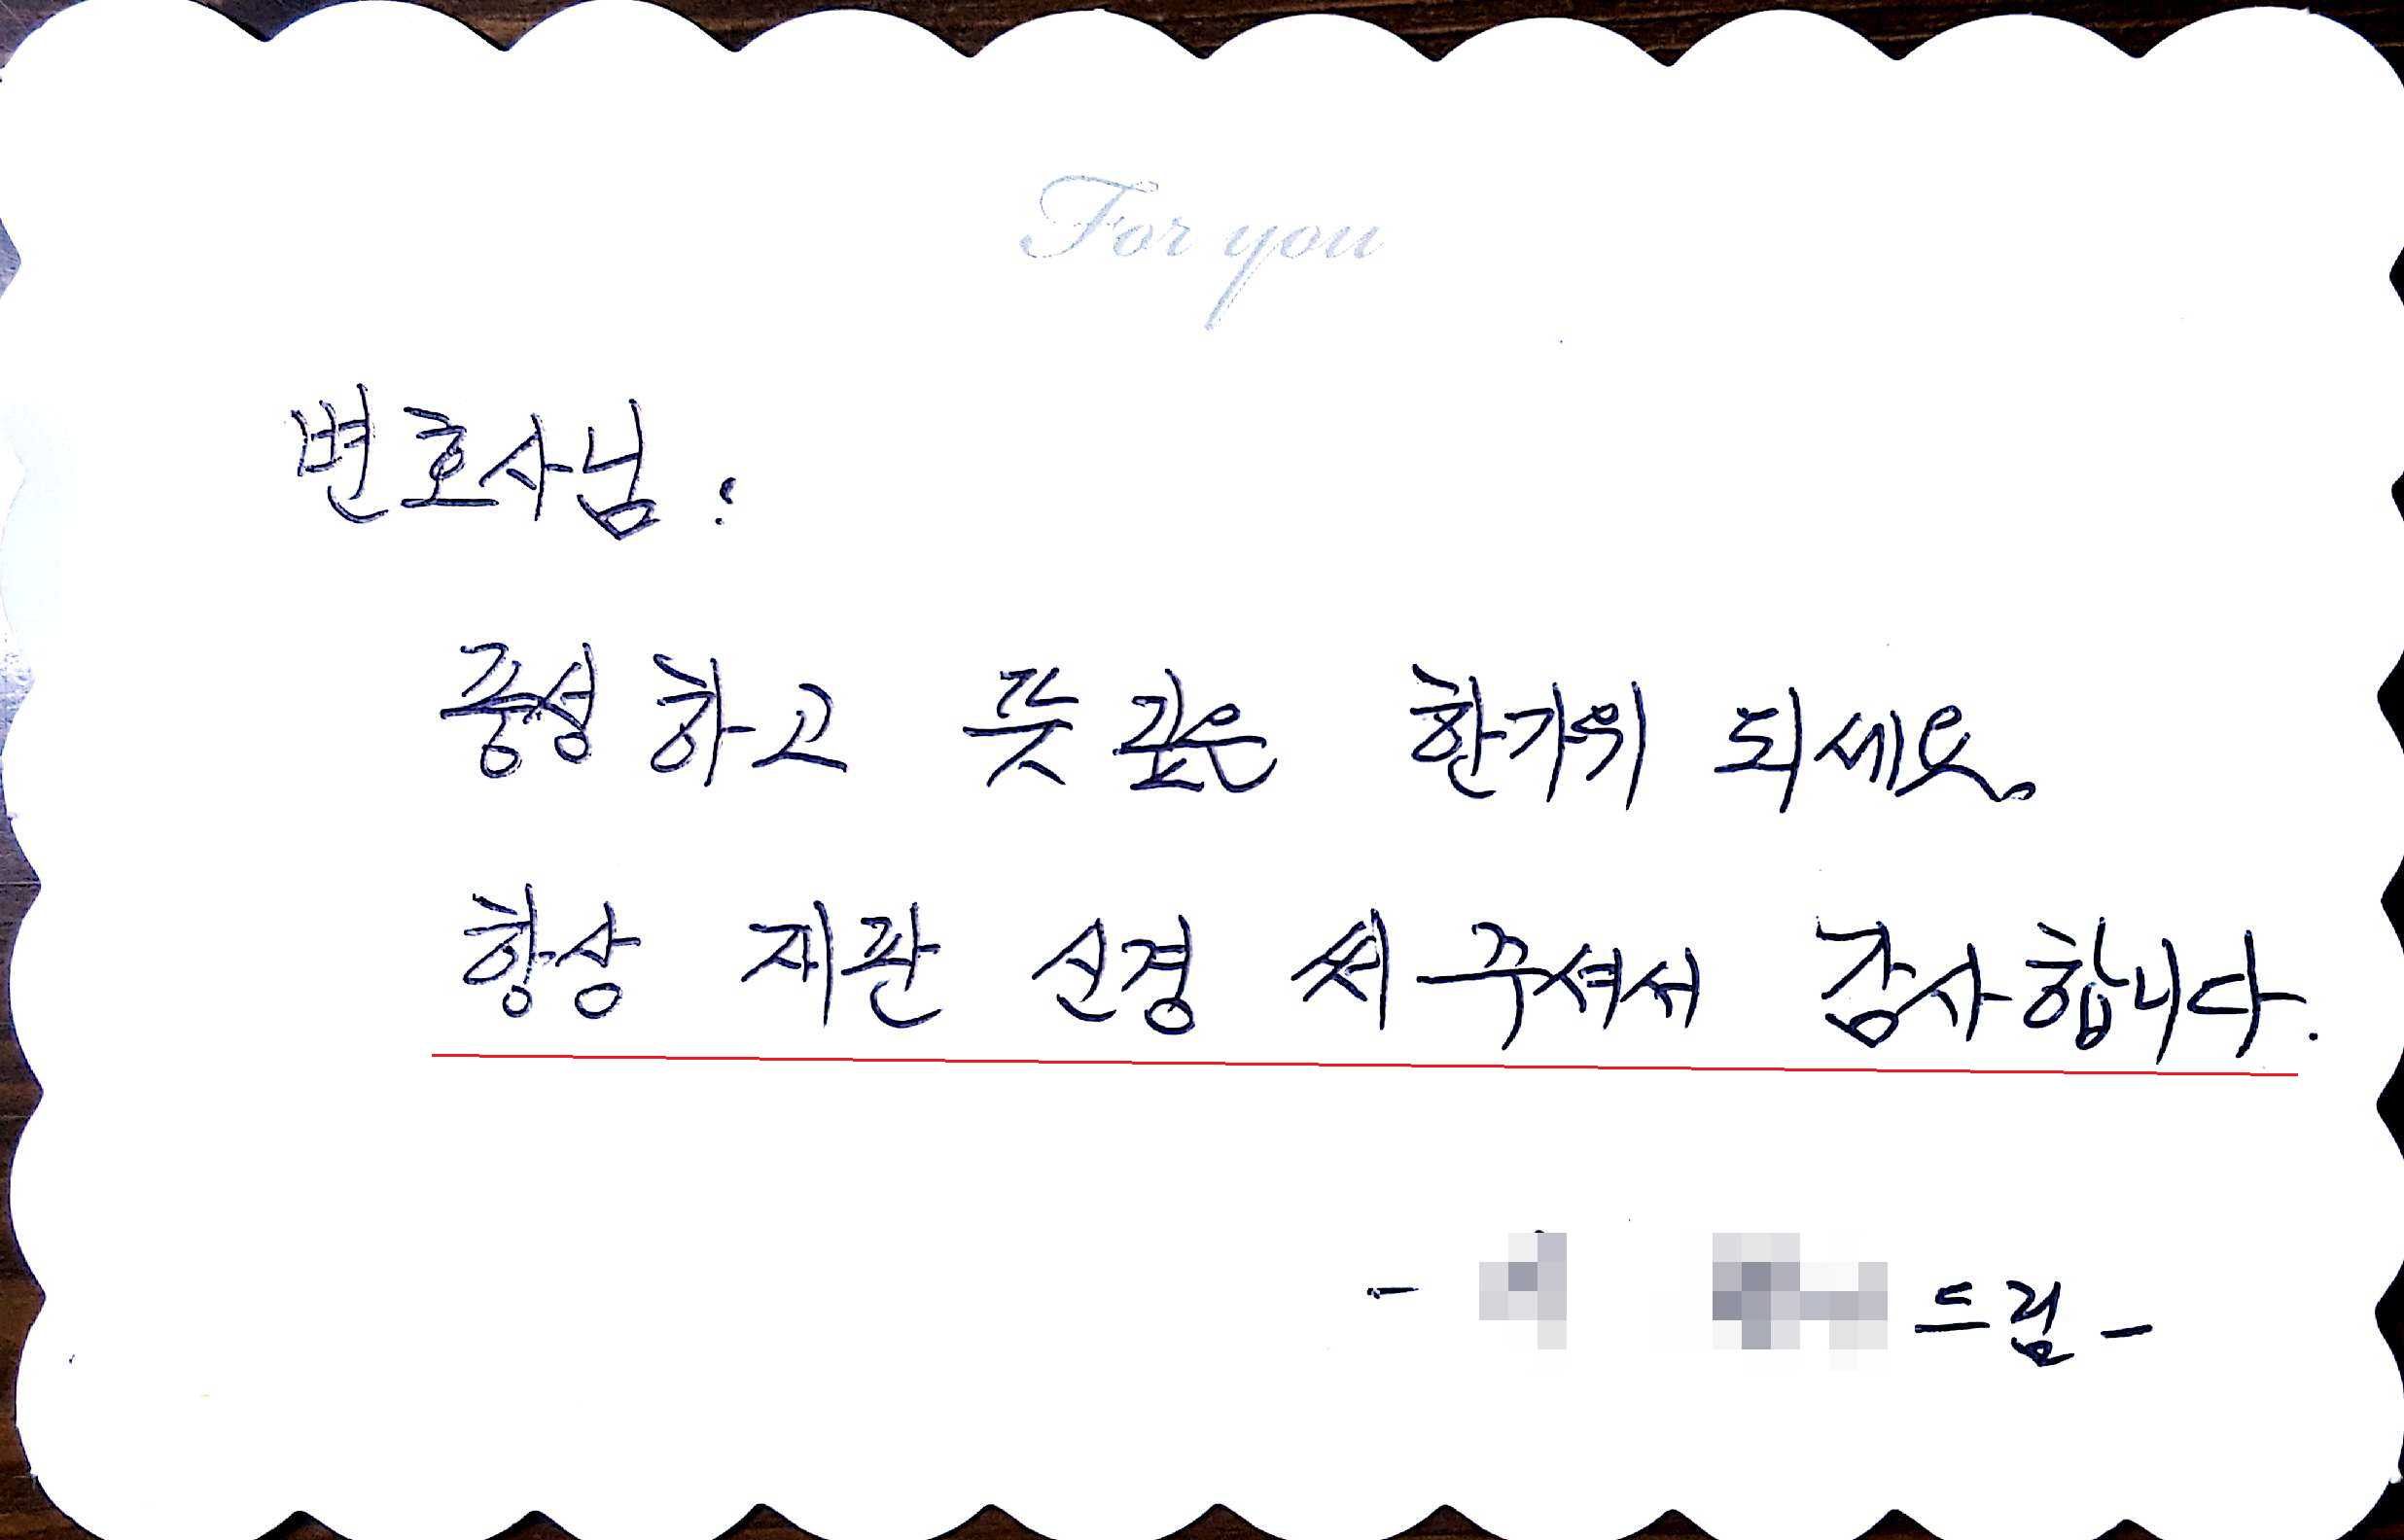 For you
변호사님:
풍성하고 뜻깊은 한가위 되세요.
항상 재판 신경 써주셔서 감사합니다.
- 드림 -